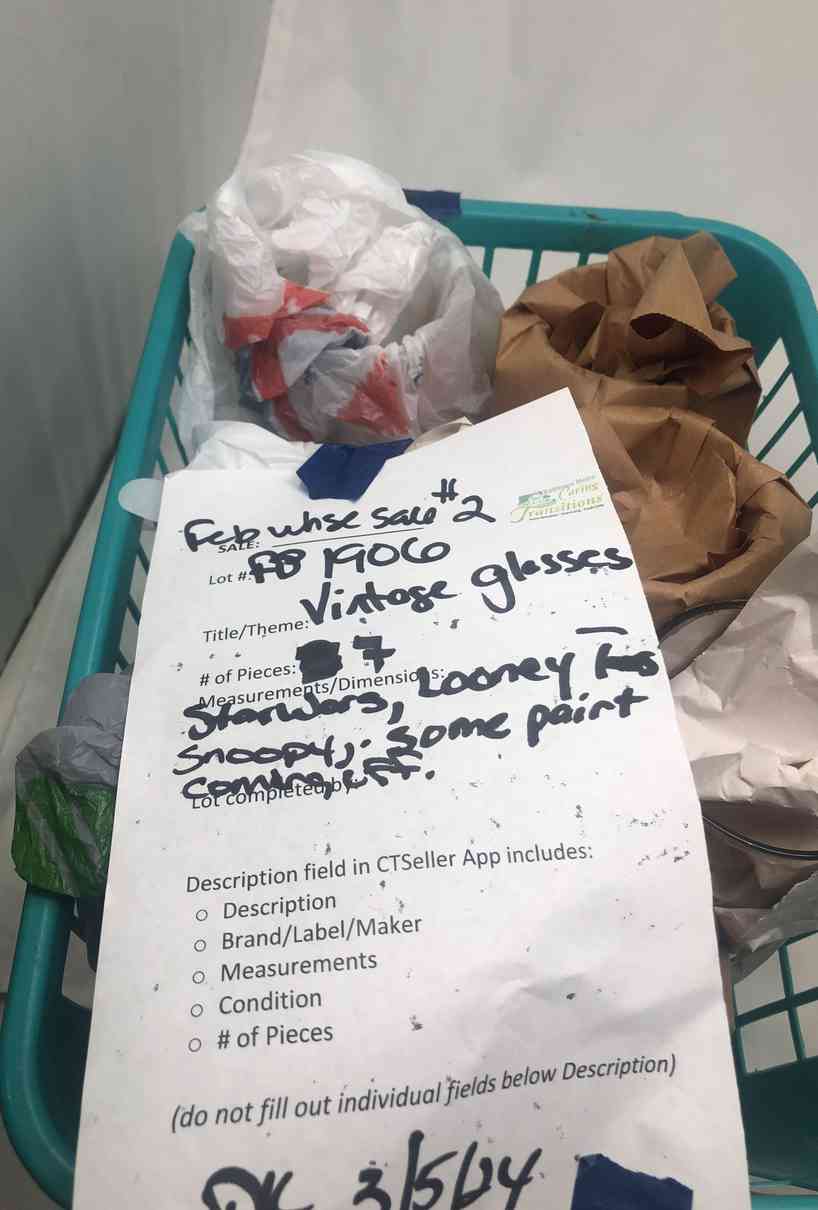 Caring
Transitions
SALE: Feb whse sale #2
Lot #: 1906
Title/Theme: Vintage glasses
# of Pieces: 7
Measurements/Dimensions:
Starwars, Looney
Snoopy, Some paint
coming off.
Lot completed by:
Description field in CTSeller App includes:
○ Description
○ Brand/Label/Maker
○ Measurements
○ Condition
○ # of Pieces
(do not fill out individual fields below Description)
DK 3/5/24